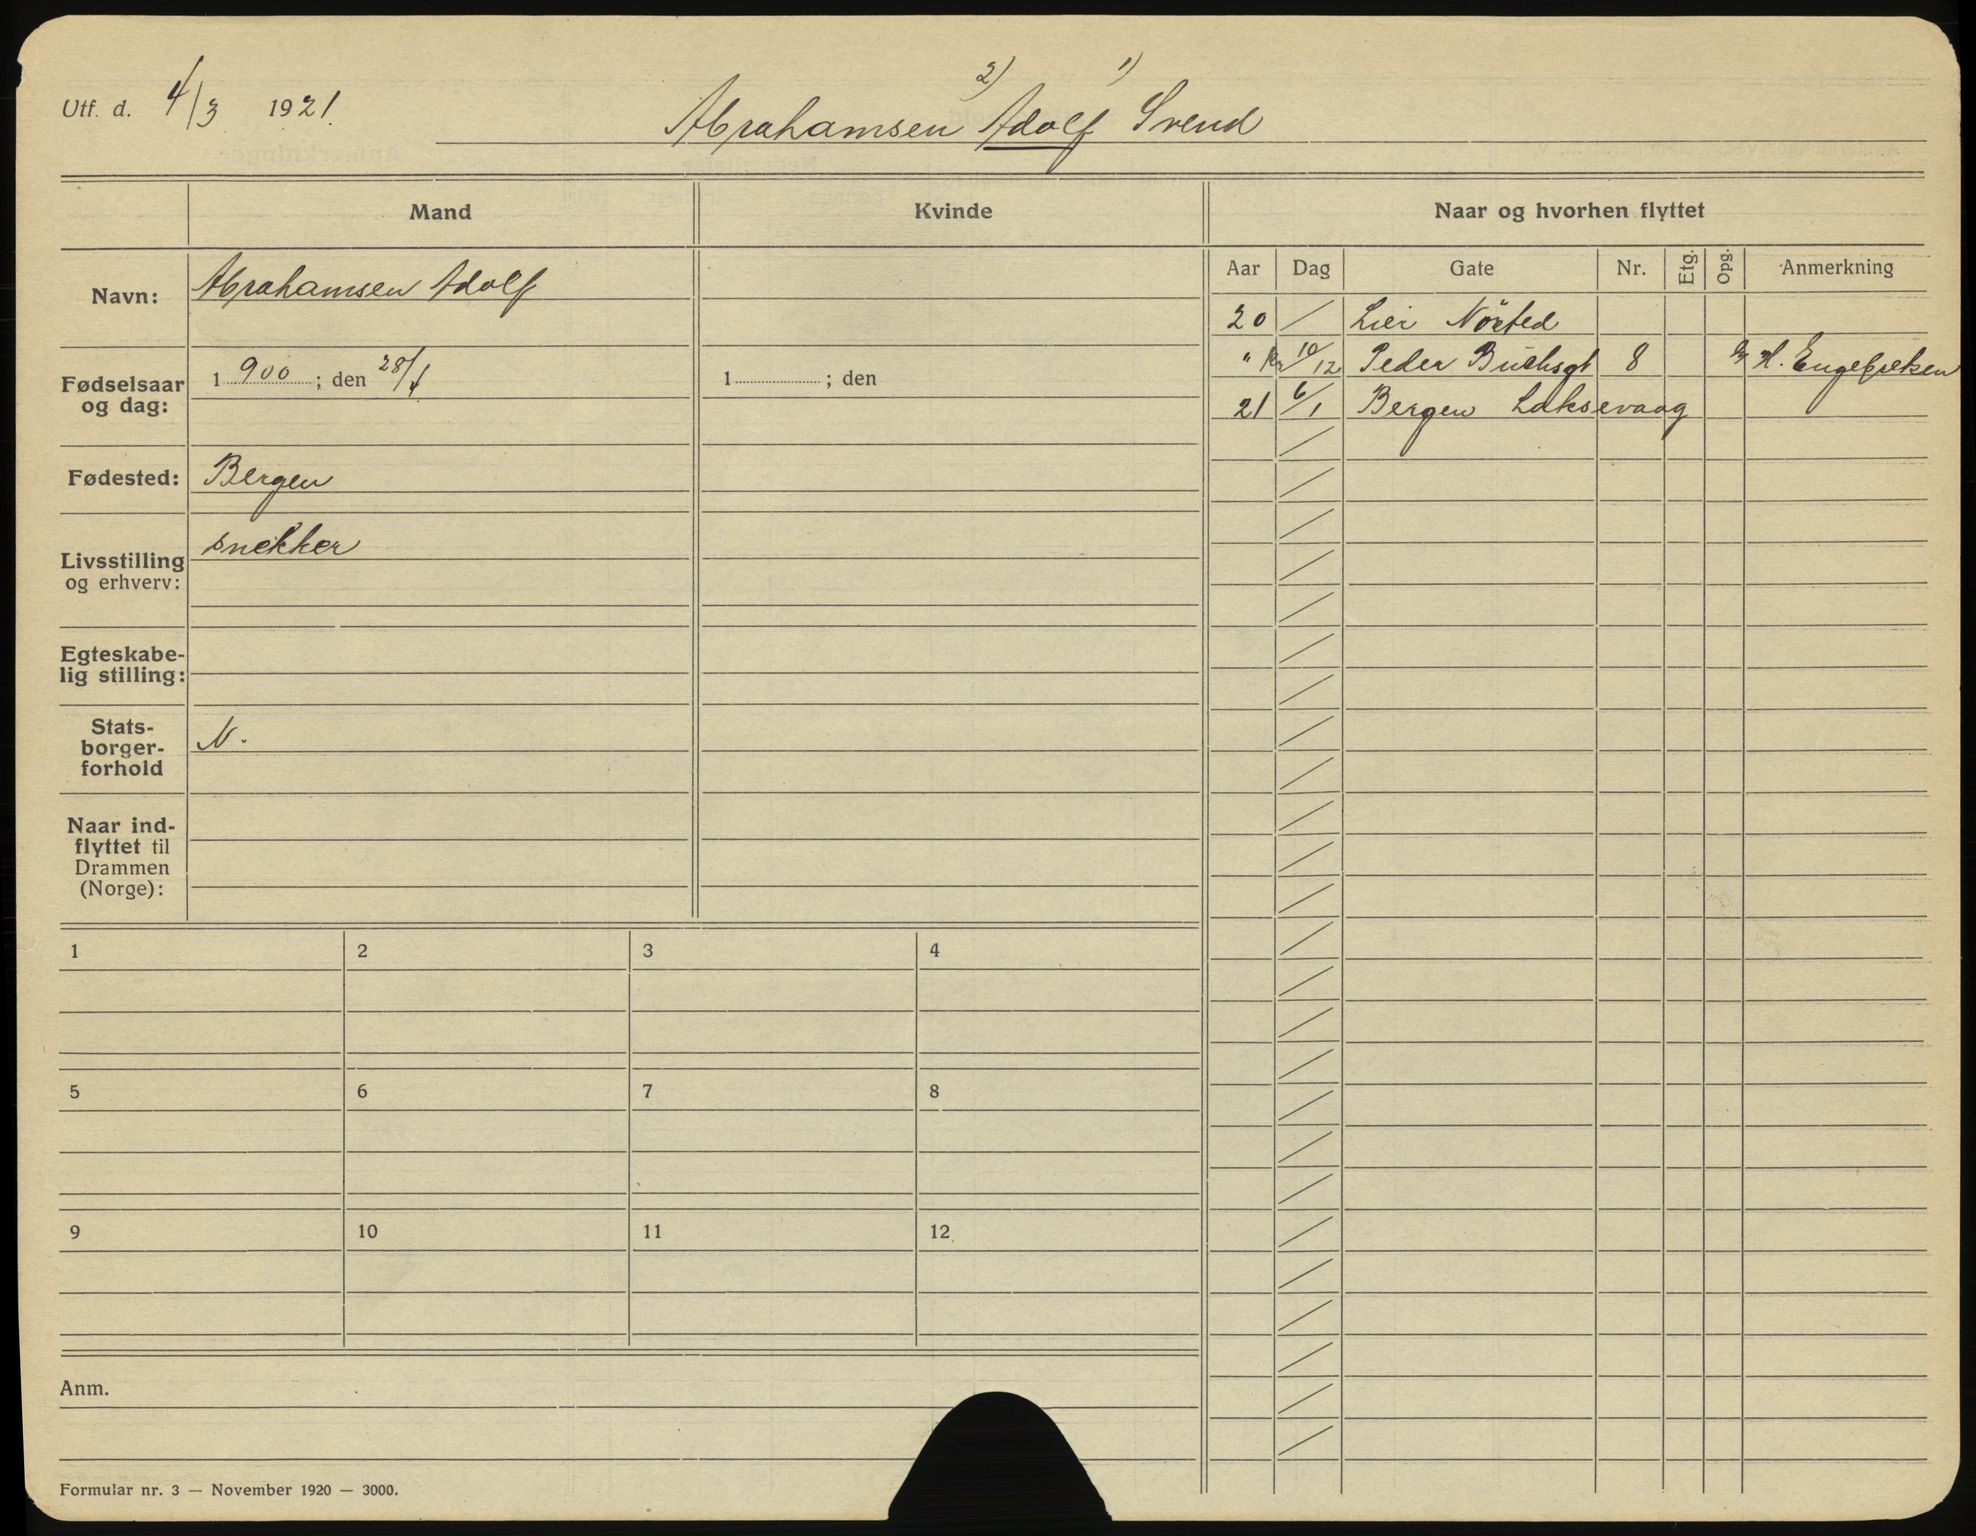 Utf. d. 4/3 1921.
2) 1)
Abrahamsen Adolf Svend
Mand Kvinde Naar og hvorhen flyttet
Aar Dag Gate Nr. Etg. Opg. Anmerkning
Navn: Abrahamsen Adolf
20 Lier Nøsted
" 10/12 Peder Buchsgt 8 H. Engebretsen
21 6/1 Bergen Laksevaag
Fødselsaar og dag: 1 900 ; den 28/1
1 ; den
Fødested: Bergen
Livsstilling og erhverv: snekker
Egteskabe-
lig stilling:
Stats-
borger-
forhold N.
Naar ind-
flyttet til
Drammen
(Norge):
1 2 3 4
5 6 7 8
9 10 11 12
Anm.
Formular nr. 3 — November 1920 — 3000.